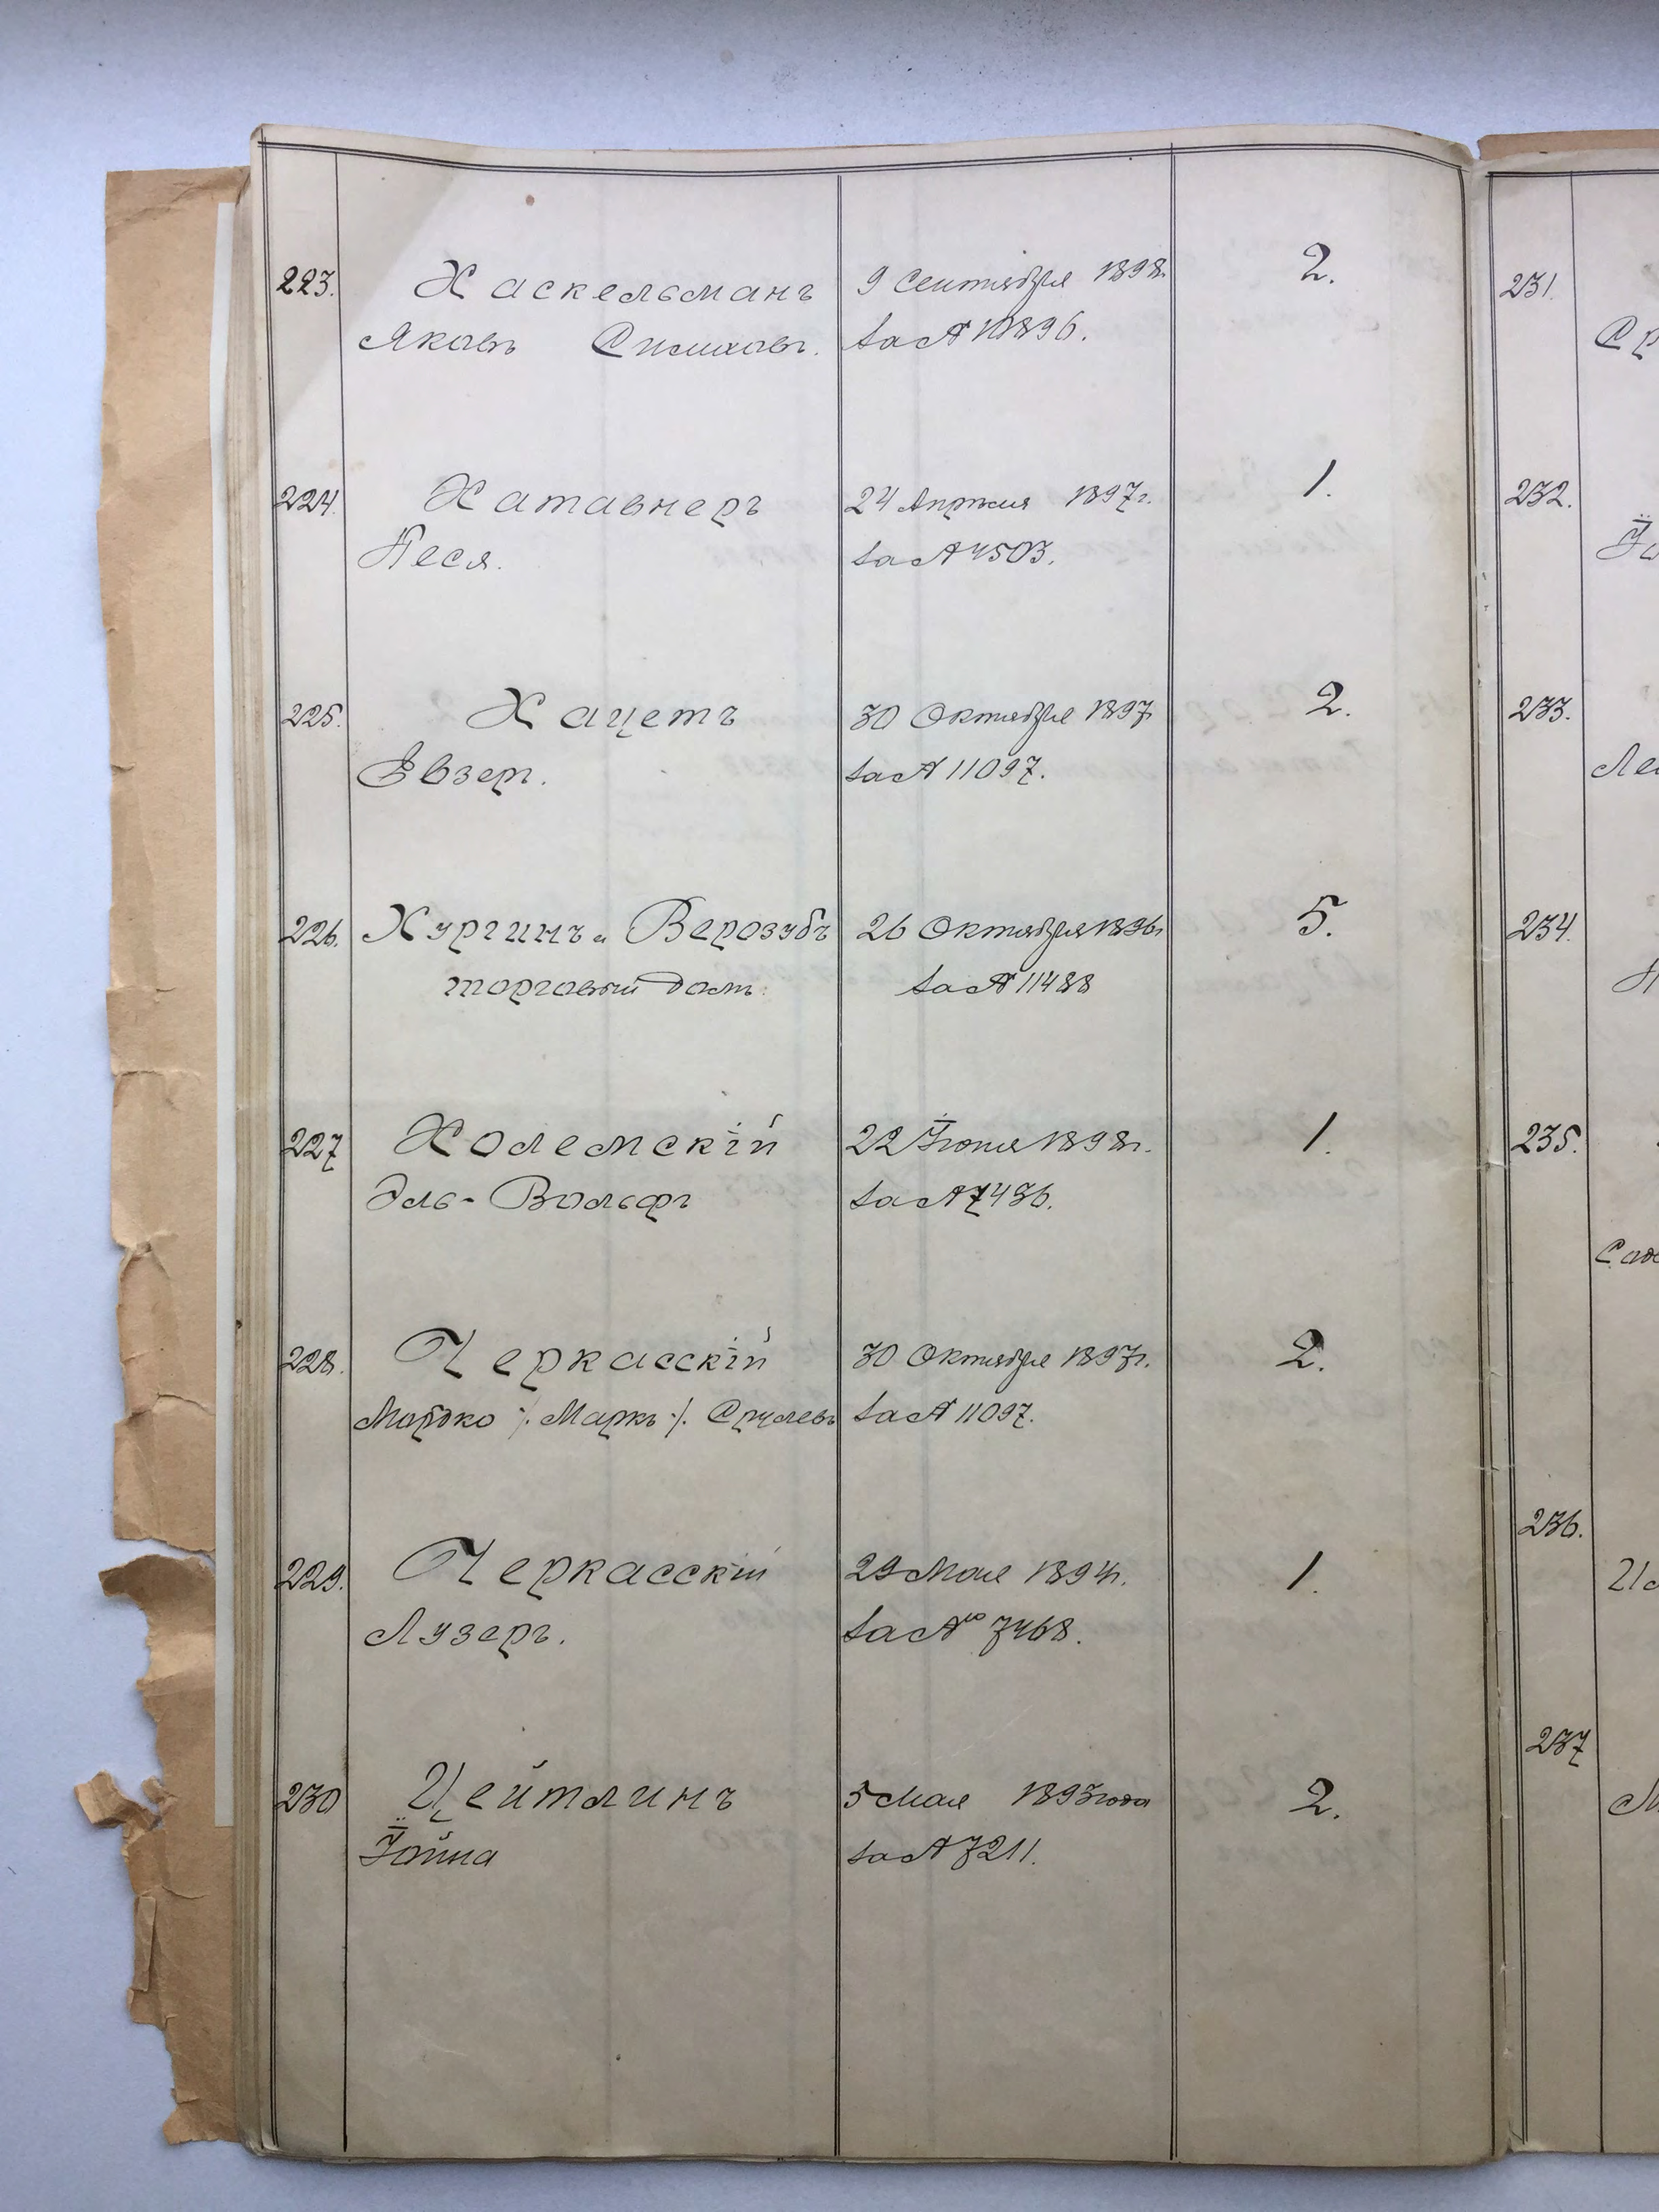 223. Хаскельманъ 9 Сентября 1898г. 2.
Яковъ Симховъ. за № 10896.
224. Хатавнеръ 24 Апрѣля 1897г. 1.
Песя. за № 4503.
225. Хацетъ 30 Октября 1897 2.
Евзеръ. за № 11097.
226. Хургинъ и Верозубъ 26 Октября 1896г. 5.
торговый домъ. за № 11488
227 Холемскій 22 Іюня 1898г. 1.
Эль-Вольфъ за № 7436.
228. Черкасскій 30 Октября 1897г. 2.
Мордко /. Маркъ ./. Срулевъ за № 11097.
229. Черкасскій 29 Мая 1894г. 1.
Лузеръ. за № 7468.
230 Цейтлинъ 5 Мая 1893 года 2.
Іойна за № 7211.
231.
Ср
232.
233.
Ле
234.
235.
236.
237